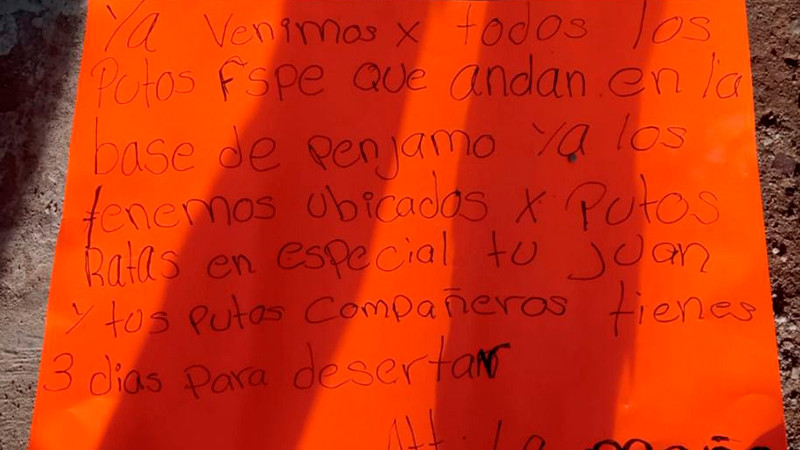 Ya Venimos x todos los
Putos FSPE QUE andan en la
base de penjamo ya los
tenemos ubicados x Putos
Ratas en especial tu juan
y tus putos compañeros tienes
3 dias para desertar
Att: La